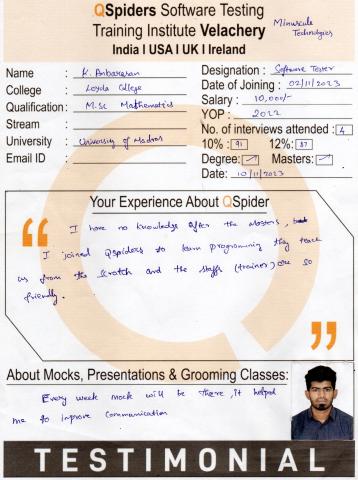 QSpiders Software Testing
Training Institute Velachery
India | USA | UK | Ireland
Minuscule
Technologies
Name : K. Anbarasan
College : Loyola College
Qualification : M.Sc Mathematics
Stream :
University : University of Madras
Email ID :
Designation : Software Tester
Date of Joining : 02/11/2023
Salary : 10,000/-
YOP : 2022
No. of interviews attended : 4
10% : 91 12% : 87
Degree: Masters:
Date: 10/11/2023
Your Experience About QSpider
I have no knowledge after the masters,
I joined Qspiders to learn programming they teach
us from the scratch and the staffs (trainer) are so
friendly.
About Mocks, Presentations & Grooming Classes:
Every week mock will be there, it helped
me to improve communication
TESTIMONIAL